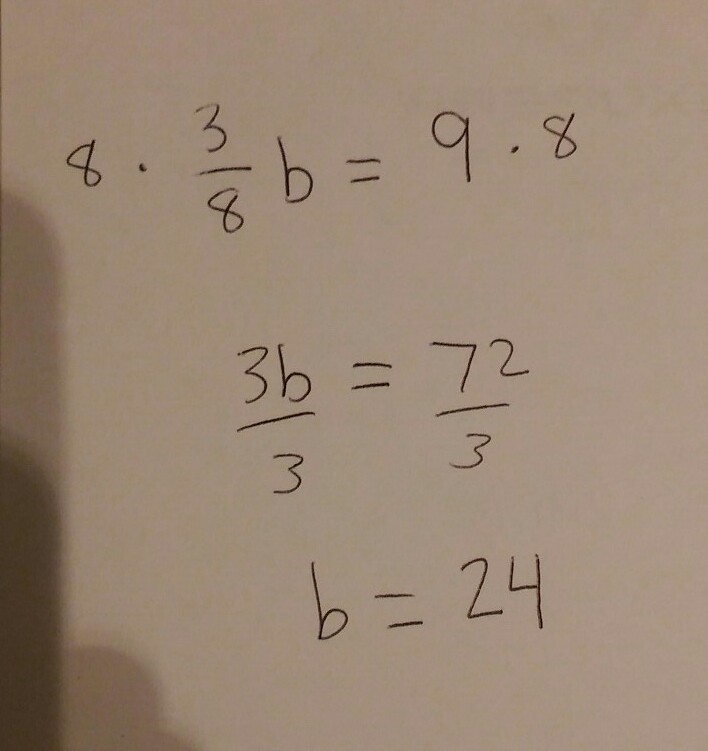 8 · 3/8 b = 9 · 8
3b/3 = 72/3
b = 24